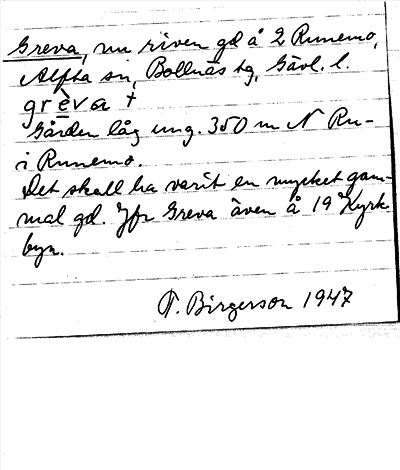 Greva, nu riven gd å 2 Runemo,
Alfta sn, Bollnäs tg, Gävl. l.
grèva †
Gården låg ung. 350 m N Ru-
i Runemo.
Det skall ha varit en mycket gam-
mal gd. Jfr Greva även å 19 Kyrk-
byn.
T. Birgerson 1947